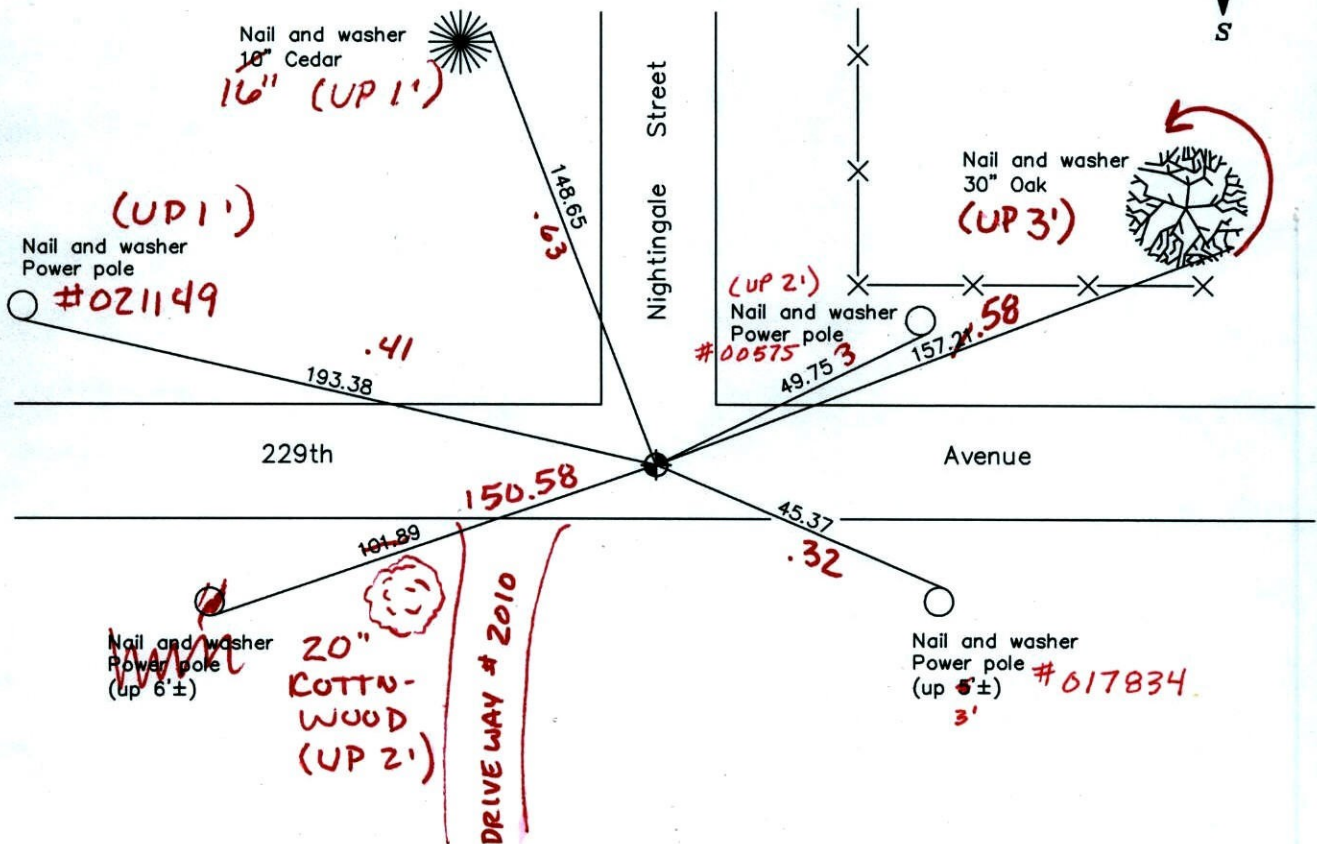 S
Nail and washer
10" Cedar
16" (UP 1')
Nightingale Street
148.65
.63
Nail and washer
30" Oak
(UP 3')
(UP 1')
Nail and washer
Power pole
#021149
(UP 2')
Nail and washer
Power pole
#00575
49.75 3
157.21 .58
.41
193.38
229th
Avenue
150.58
101.89
45.37
.32
Nail and washer
Power pole
(up 6'±)
20"
KOTTN-
WOOD
(UP 2')
DRIVEWAY # 2010
Nail and washer
Power pole
(up 5'±)
3'
#017834